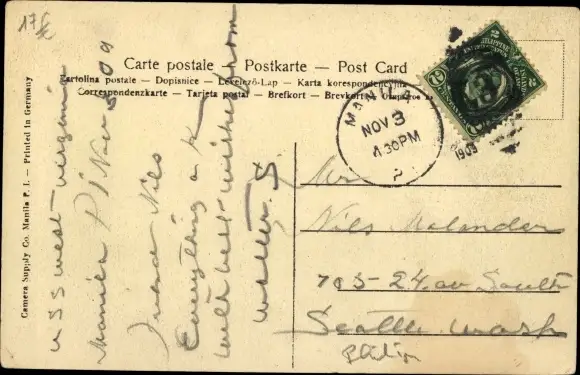 17 6/-
Carte postale — Postkarte — Post Card
Cartolina postale — Dopisnice — Levelező-Lap — Karta korespondencyjna
Correspondenzkarte — Tarjeta postal — Brefkort — Brevkort
Camera Supply Co. Manila P. I. — Printed in Germany
MANILA
NOV 3
4 30 PM
P
1909
2
PHILIPPINE
ISLANDS
2
U S S West-Virginia
Manila P I Nov 3 09
Friend Nils
Everything o K
with best wishes from
Walter. S.
Mr
Nils
705-24. av South
Seattle. Wash